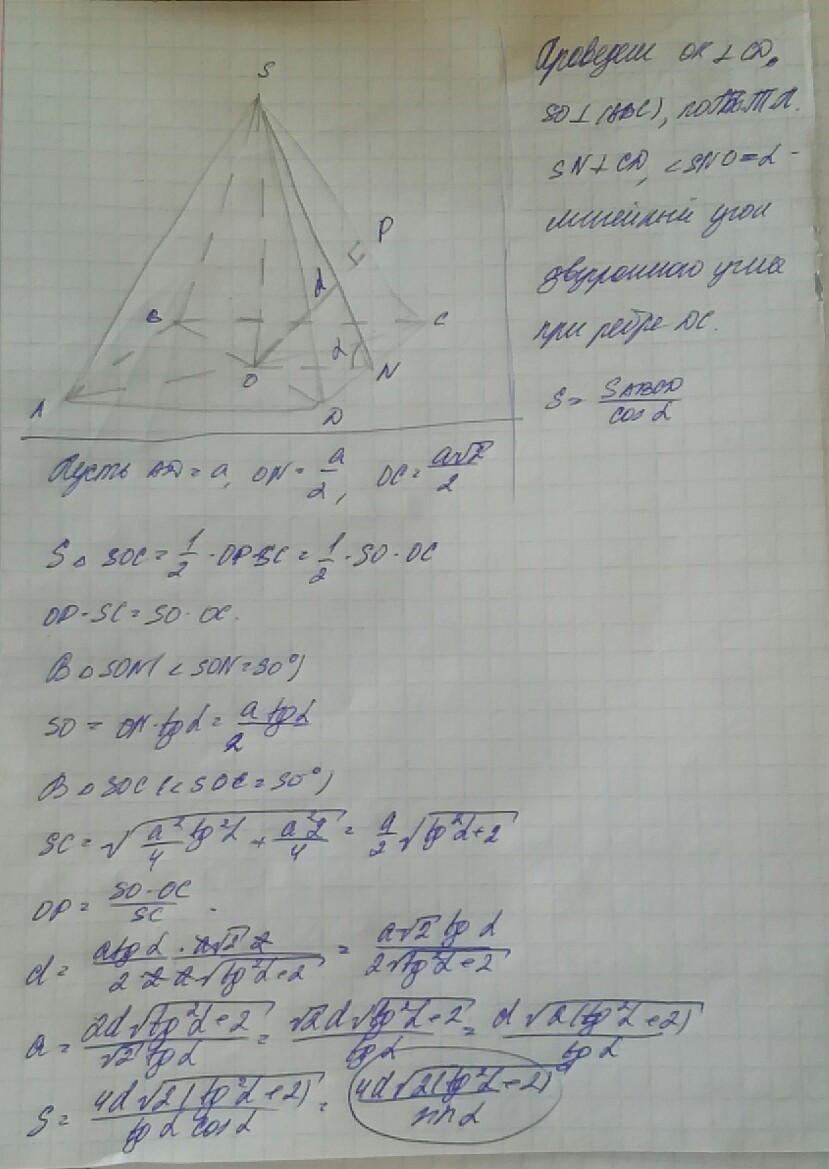 S
P
d
B
C
α
O
N
A
D
Проведем OK ⊥ CD,
SO ⊥ (ABC),
SN ⊥ CD, ∠SNO = α -
линейный угол
двугранного угла
при ребре DC.
S = \frac{S_{ABCD}}{cos α}
Пусть AD = a, ON = \frac{a}{2}, OC = \frac{a√2}{2}
S_Δ SOC = \frac{1}{2} · OP · SC = \frac{1}{2} · SO · OC
OP · SC = SO · OC.
В Δ SON (∠SON = 90°)
SO = ON · tg α = \frac{a tg α}{2}
В Δ SOC (∠SOC = 90°)
SC = \sqrt{\frac{a^2}{4} tg^2 α + \frac{a^2 2}{4}} = \frac{a}{2} \sqrt{tg^2 α + 2}
OP = \frac{SO · OC}{SC}.
d = \frac{a tg α · a√2 · 2}{2 · 2 · a \sqrt{tg^2 α + 2}} = \frac{a√2 tg α}{2\sqrt{tg^2 α + 2}}
a = \frac{2d\sqrt{tg^2 α + 2}}{√2 tg α} = \frac{√2 d\sqrt{tg^2 α + 2}}{tg α} = \frac{d\sqrt{2(tg^2 α + 2)}}{tg α}
S = \frac{4d\sqrt{2(tg^2 α + 2)}}{tg α cos α} = \frac{4d\sqrt{2(tg^2 α + 2)}}{sin α}